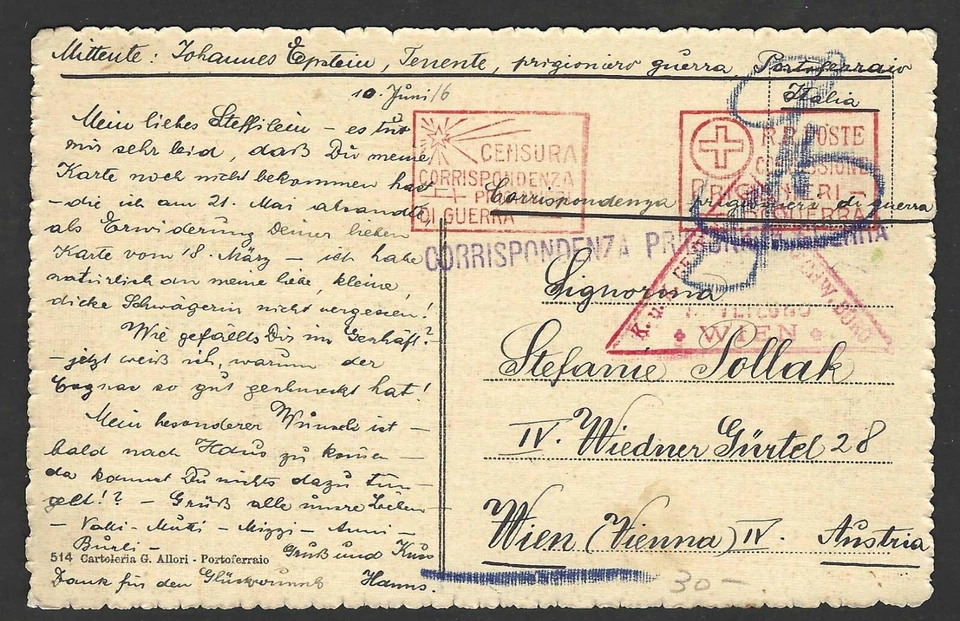 Mittente: Johannes Epstein, Tenente, prigioniero guerra, Portoferraio
Italia
10. Juni 16
Mein liebes Steffilein – es tut
mir sehr leid, daß Du meine
Karte noch nicht bekommen hast
– die ich am 21. Mai absandte,
als Erwiderung Deiner lieben
Karte vom 18. März – ich habe
natürlich an meine liebe, kleine,
dicke Schwägerin nicht vergessen!
Wie gefällts Dir im Geschäft?
– jetzt weiß ich, warum der
Cognac so gut geschmeckt hat!
Mein besonderer Wunsch ist –
bald nach Haus zu kommen –
da kannst Du nichts dazu tun –
gelt!? – Grüß alle unsre Lieben
– Mutti – Mizzi – Anni –
Burli –
Gruß und Kuss
514 Cartoleria G. Allori - Portoferraio
Dank für den Glückwunsch Hanns.
CENSURA
CORRISPONDENZA
PRIGIONIERI
DI GUERRA
R.R. POSTE
COMMISSIONE
PRIGIONIERI –
DI GUERRA
Corrispondenza prigionieri di guerra
CORRISPONDENZA PRIGIONIERI GUERRA
K. u. K.
WIEN
Signorina
Stefanie Pollak
IV. Wiedner Gürtel 28
Wien (Vienna) IV. Austria
30 –